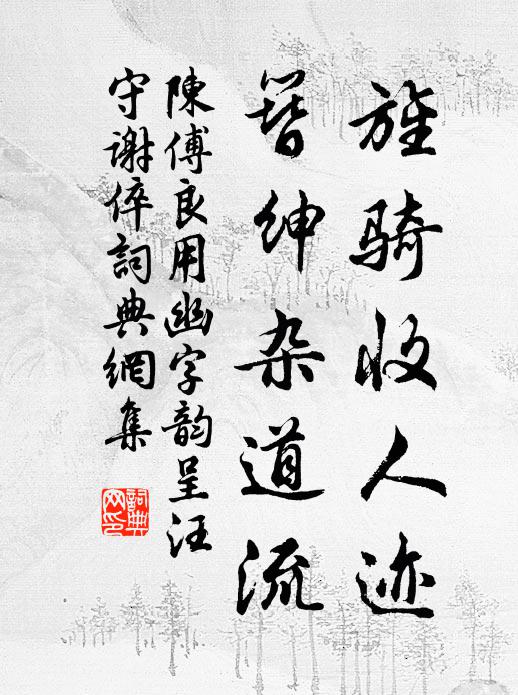 旌骑收人迹
簪绅杂道流
陳傅良用幽字韵呈汪
守谢倅詞典網集
詞典网印